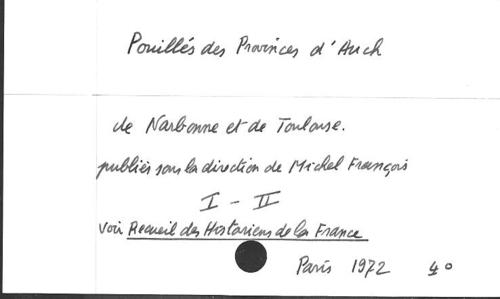 Pouillés des Provinces d'Auch
de Narbonne et de Toulouse.
publiés sous la direction de Michel François
I - II
voir Recueil des Historiens de la France
Paris 1972 4°